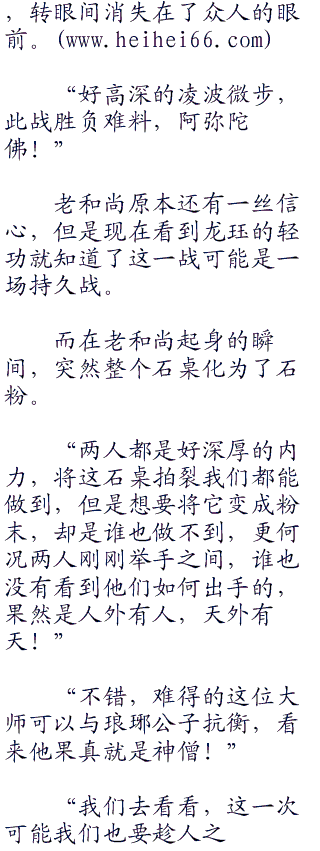 ，转眼间消失在了众人的眼
前。(www.heihei66.com)
“好高深的凌波微步，
此战胜负难料，阿弥陀
佛！”
老和尚原本还有一丝信
心，但是现在看到龙珏的轻
功就知道了这一战可能是一
场持久战。
而在老和尚起身的瞬
间，突然整个石桌化为了石
粉。
“两人都是好深厚的内
力，将这石桌拍裂我们都能
做到，但是想要将它变成粉
末，却是谁也做不到，更何
况两人刚刚举手之间，谁也
没有看到他们如何出手的，
果然是人外有人，天外有
天！”
“不错，难得的这位大
师可以与琅琊公子抗衡，看
来他果真就是神僧！”
“我们去看看，这一次
可能我们也要趁人之